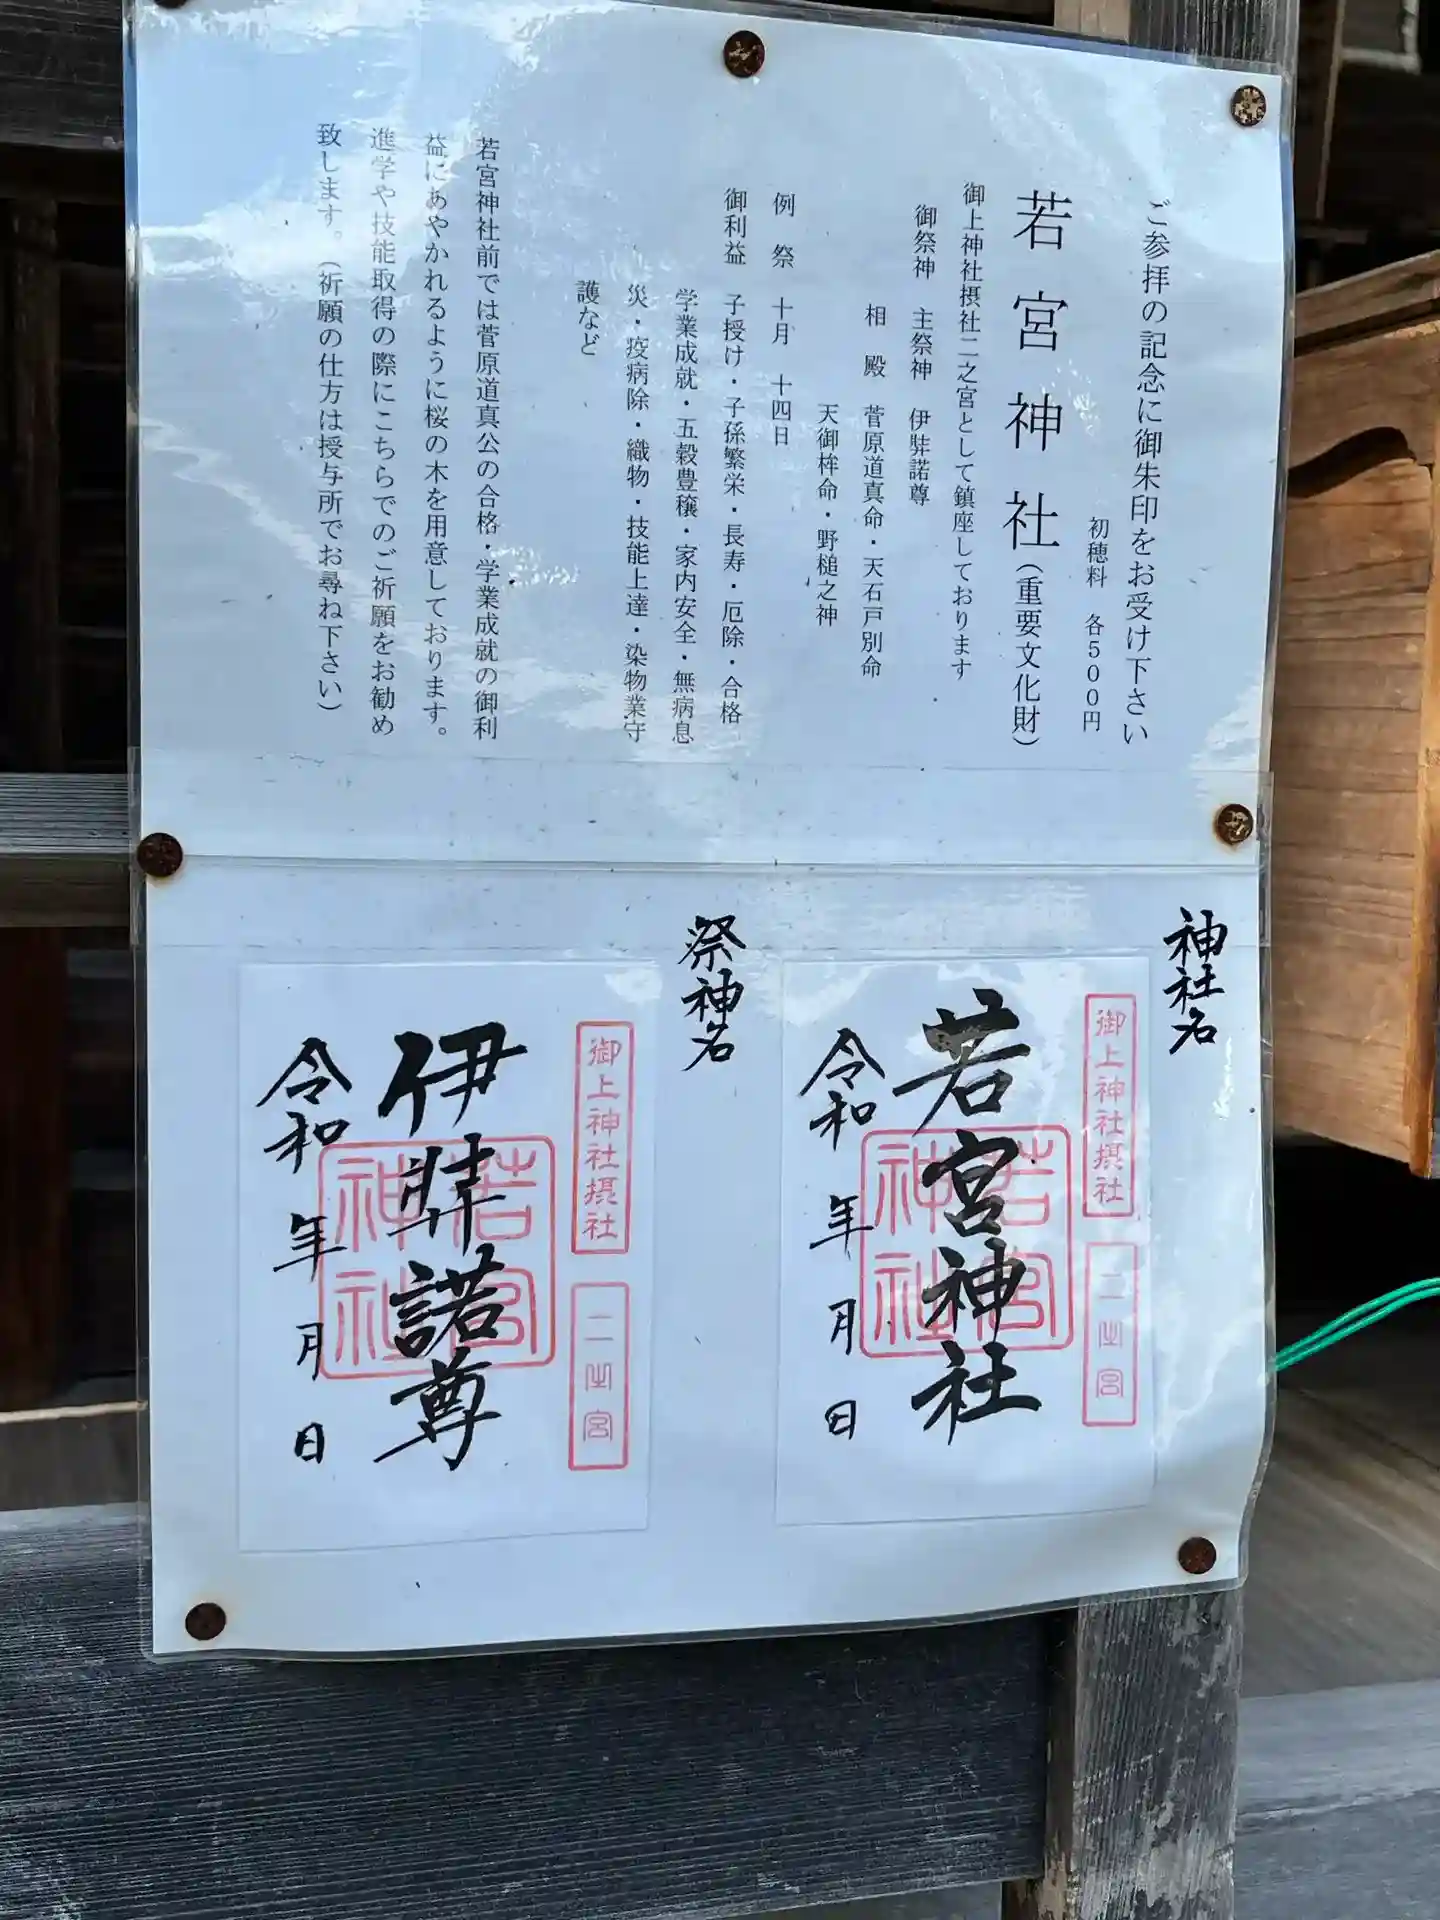 ご参拝の記念に御朱印をお受け下さい
初穂料　各500円
若宮神社(重要文化財)
御上神社摂社二之宮として鎮座しております
御祭神　主祭神　伊弉諾尊
相　殿　菅原道真命・天石戸別命
天御桙命・野槌之神
例　祭　十月　十四日
御利益　子授け・子孫繁栄・長寿・厄除・合格
学業成就・五穀豊穣・家内安全・無病息
災・疫病除・織物・技能上達・染物業守
護など
若宮神社前では菅原道真公の合格・学業成就の御利
益にあやかれるように桜の木を用意しております。
進学や技能取得の際にこちらでのご祈願をお勧め
致します。(祈願の仕方は授与所でお尋ね下さい)
神社名
御上神社摂社
二之宮
若宮神社
若宮
神社
令和　年　月　日
祭神名
御上神社摂社
二之宮
伊弉諾尊
若宮
神社
令和　年　月　日